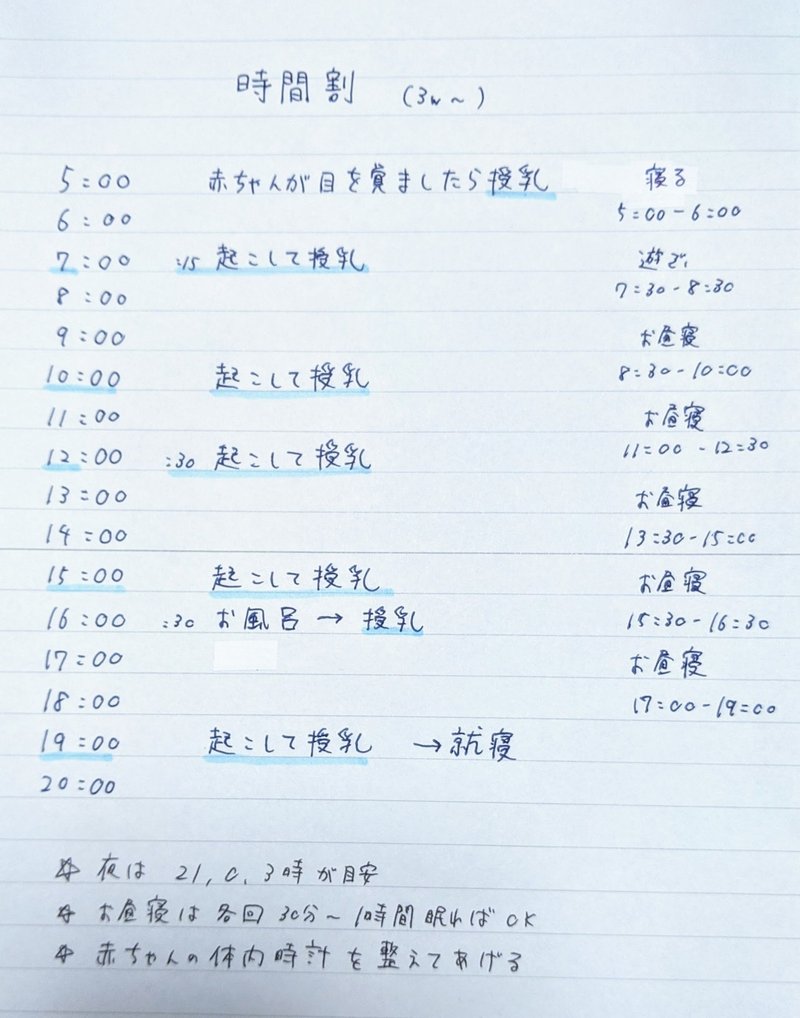 時間割 (3w~)
5:00 赤ちゃんが目を覚ましたら授乳 寝る
6:00 5:00-6:00
7:00 :15 起こして授乳 遊び
8:00 7:30-8:30
9:00 お昼寝
10:00 起こして授乳 8:30-10:00
11:00 お昼寝
12:00 :30 起こして授乳 11:00-12:30
13:00 お昼寝
14:00 13:30-15:00
15:00 起こして授乳 お昼寝
16:00 :30 お風呂→授乳 15:30-16:30
17:00 お昼寝
18:00 17:00-19:00
19:00 起こして授乳 →就寝
20:00
☆ 夜は 21, 0, 3時が目安
☆ お昼寝は各回30分~1時間眠ればOK
☆ 赤ちゃんの体内時計を整えてあげる